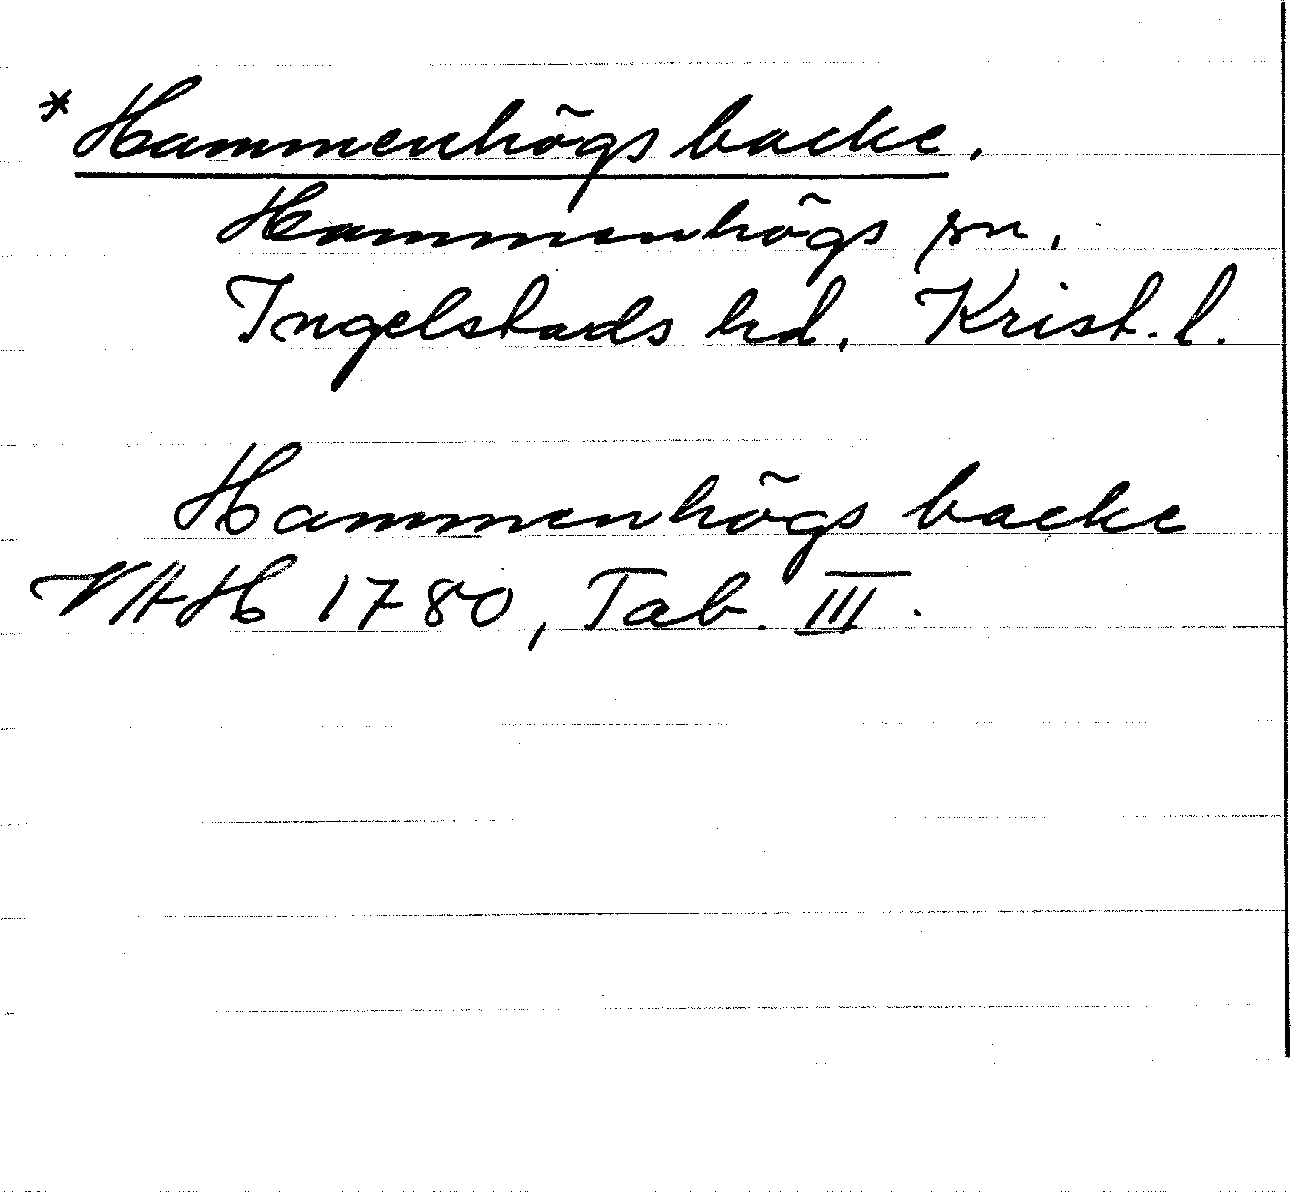 * Hammenhögs backe.
Hammenhögs sn.
Ingelstads hd. Krist. l.
Hammenhögs backe
VAH 1780, Tab. III.